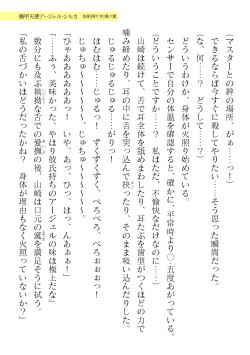 機甲天使アージェル・シルカ
(マスターとの絆の場所、がぁ……っ!)
できるならば今すぐに殺してやりたい……そう思った瞬間だった。
(な、何……? どうして……?)
どういうわけか、身体が火照り始めている。
センサーで自分の体温を確認すると、確かに、平常時より〇・五度あがっている。
(どういうことですか……? 私はただ、不愉快なだけなのに……)
山崎は続けて、舌で耳全体を舐めまわしたり、耳たぶを歯型がつくほどの力で
噛み締めたり、耳の中に舌を突っ込んでくると、そのまま吸い込んだりした。
「じゅちゅ～～～～～～っ!
はむはむ……じゅるるっ! ずくずくずく、べろべろ、べろぉぉぉっ!
じゅちゅ～～～～～～っ!」
「ひゃああああっ! いや、あっ! はっ、んあぁぁ!」
「……ふぅ、美味かった。やはり彼氏持ちのアージェルの味は極上だな」
数分にも及ぶねちっこい舌での愛撫の後、山崎は口元の涎を満足そうに拭う。
「私の舌づかいはどうだったかね? 身体が理由もなく火照っていないかね?」